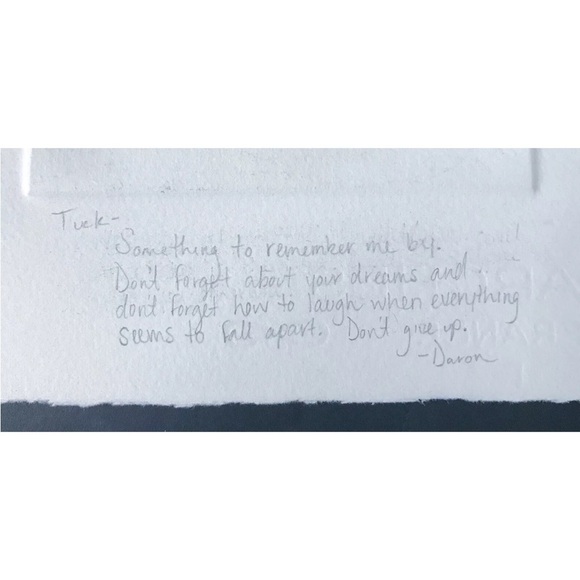 Tuck-
Something to remember me by.
Don't forget about your dreams and
don't forget how to laugh when everything
seems to fall apart. Don't give up.
-Daron